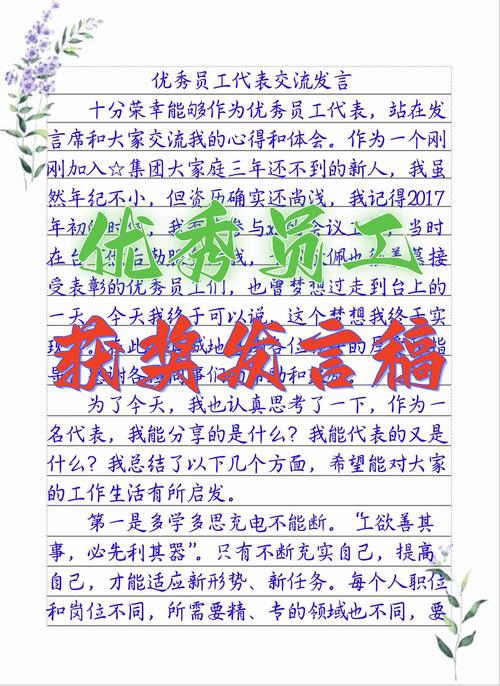 优秀员工代表交流发言
十分荣幸能够作为优秀员工代表，站在发
言席和大家交流我的心得和体会。作为一个刚
刚加入☆集团大家庭三年还不到的新人，我虽
然年纪不小，但资历确实还尚浅，我记得2017
年初的时候，我 参与 会议 当时
在台 我，一 佩也 羡慕接
受表彰的优秀员工们，也曾梦想过走到台上的
一天。今天我终于可以说，这个梦想我终于实
现 在此 地 各位 指
导 谢各 事们 帮助和
为了今天，我也认真思考了一下，作为一
名代表，我能分享的是什么？我能代表的又是
什么？我总结了以下几个方面，希望能对大家
的工作生活有所启发。
第一是多学多思充电不能断。“工欲善其
事，必先利其器”。只有不断充实自己，提高
自己，才能适应新形势、新任务。每个人职位
和岗位不同，所需要精、专的领域也不同，要
优秀员工
获奖发言稿